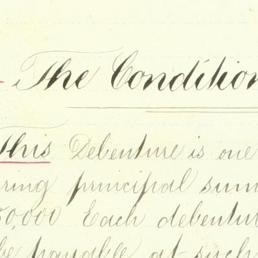 The Condition
This Debenture is one
ring principal sum
50,000 Each debentur
be payable at such